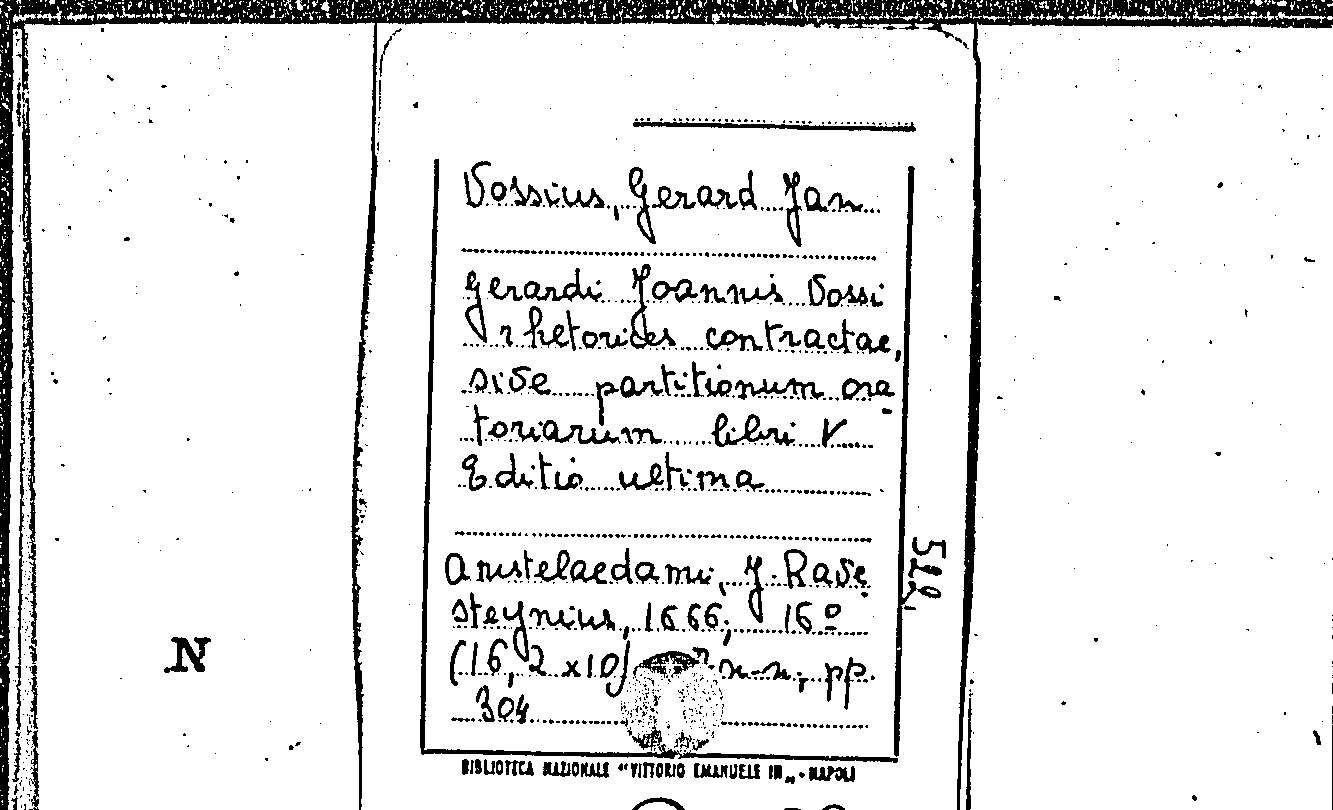 Vossius, Gerard Jan
Gerardi Joannis Vossi
rhetorices contractae,
sive partitionum ora-
toriarum libri V
Editio ultima
Amstelaedami, J. Rave-
steynius, 1666; 16º
(16,2 x 10) n-n; pp.
304
522
N
BIBLIOTECA NAZIONALE "VITTORIO EMANUELE III" - NAPOLI